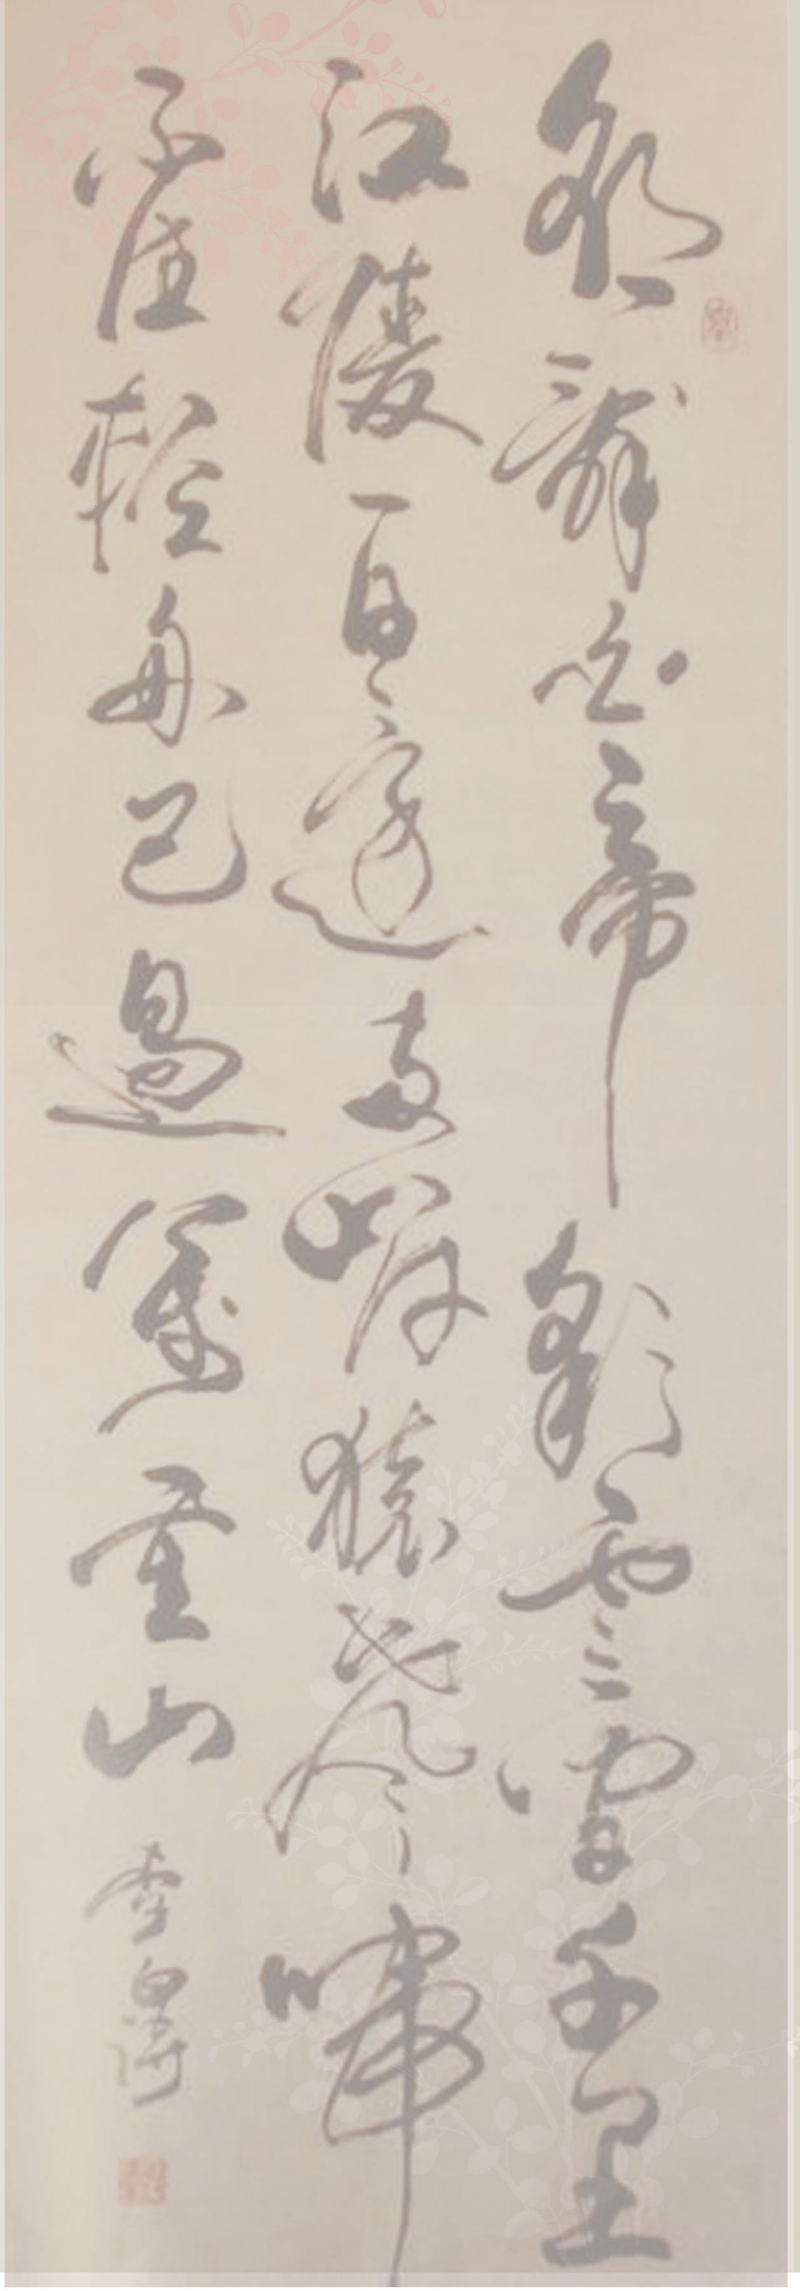 朝辭白帝彩雲間千里
江陵一日還兩岸猿聲嘯
不住輕舟已過萬重山
李白詩